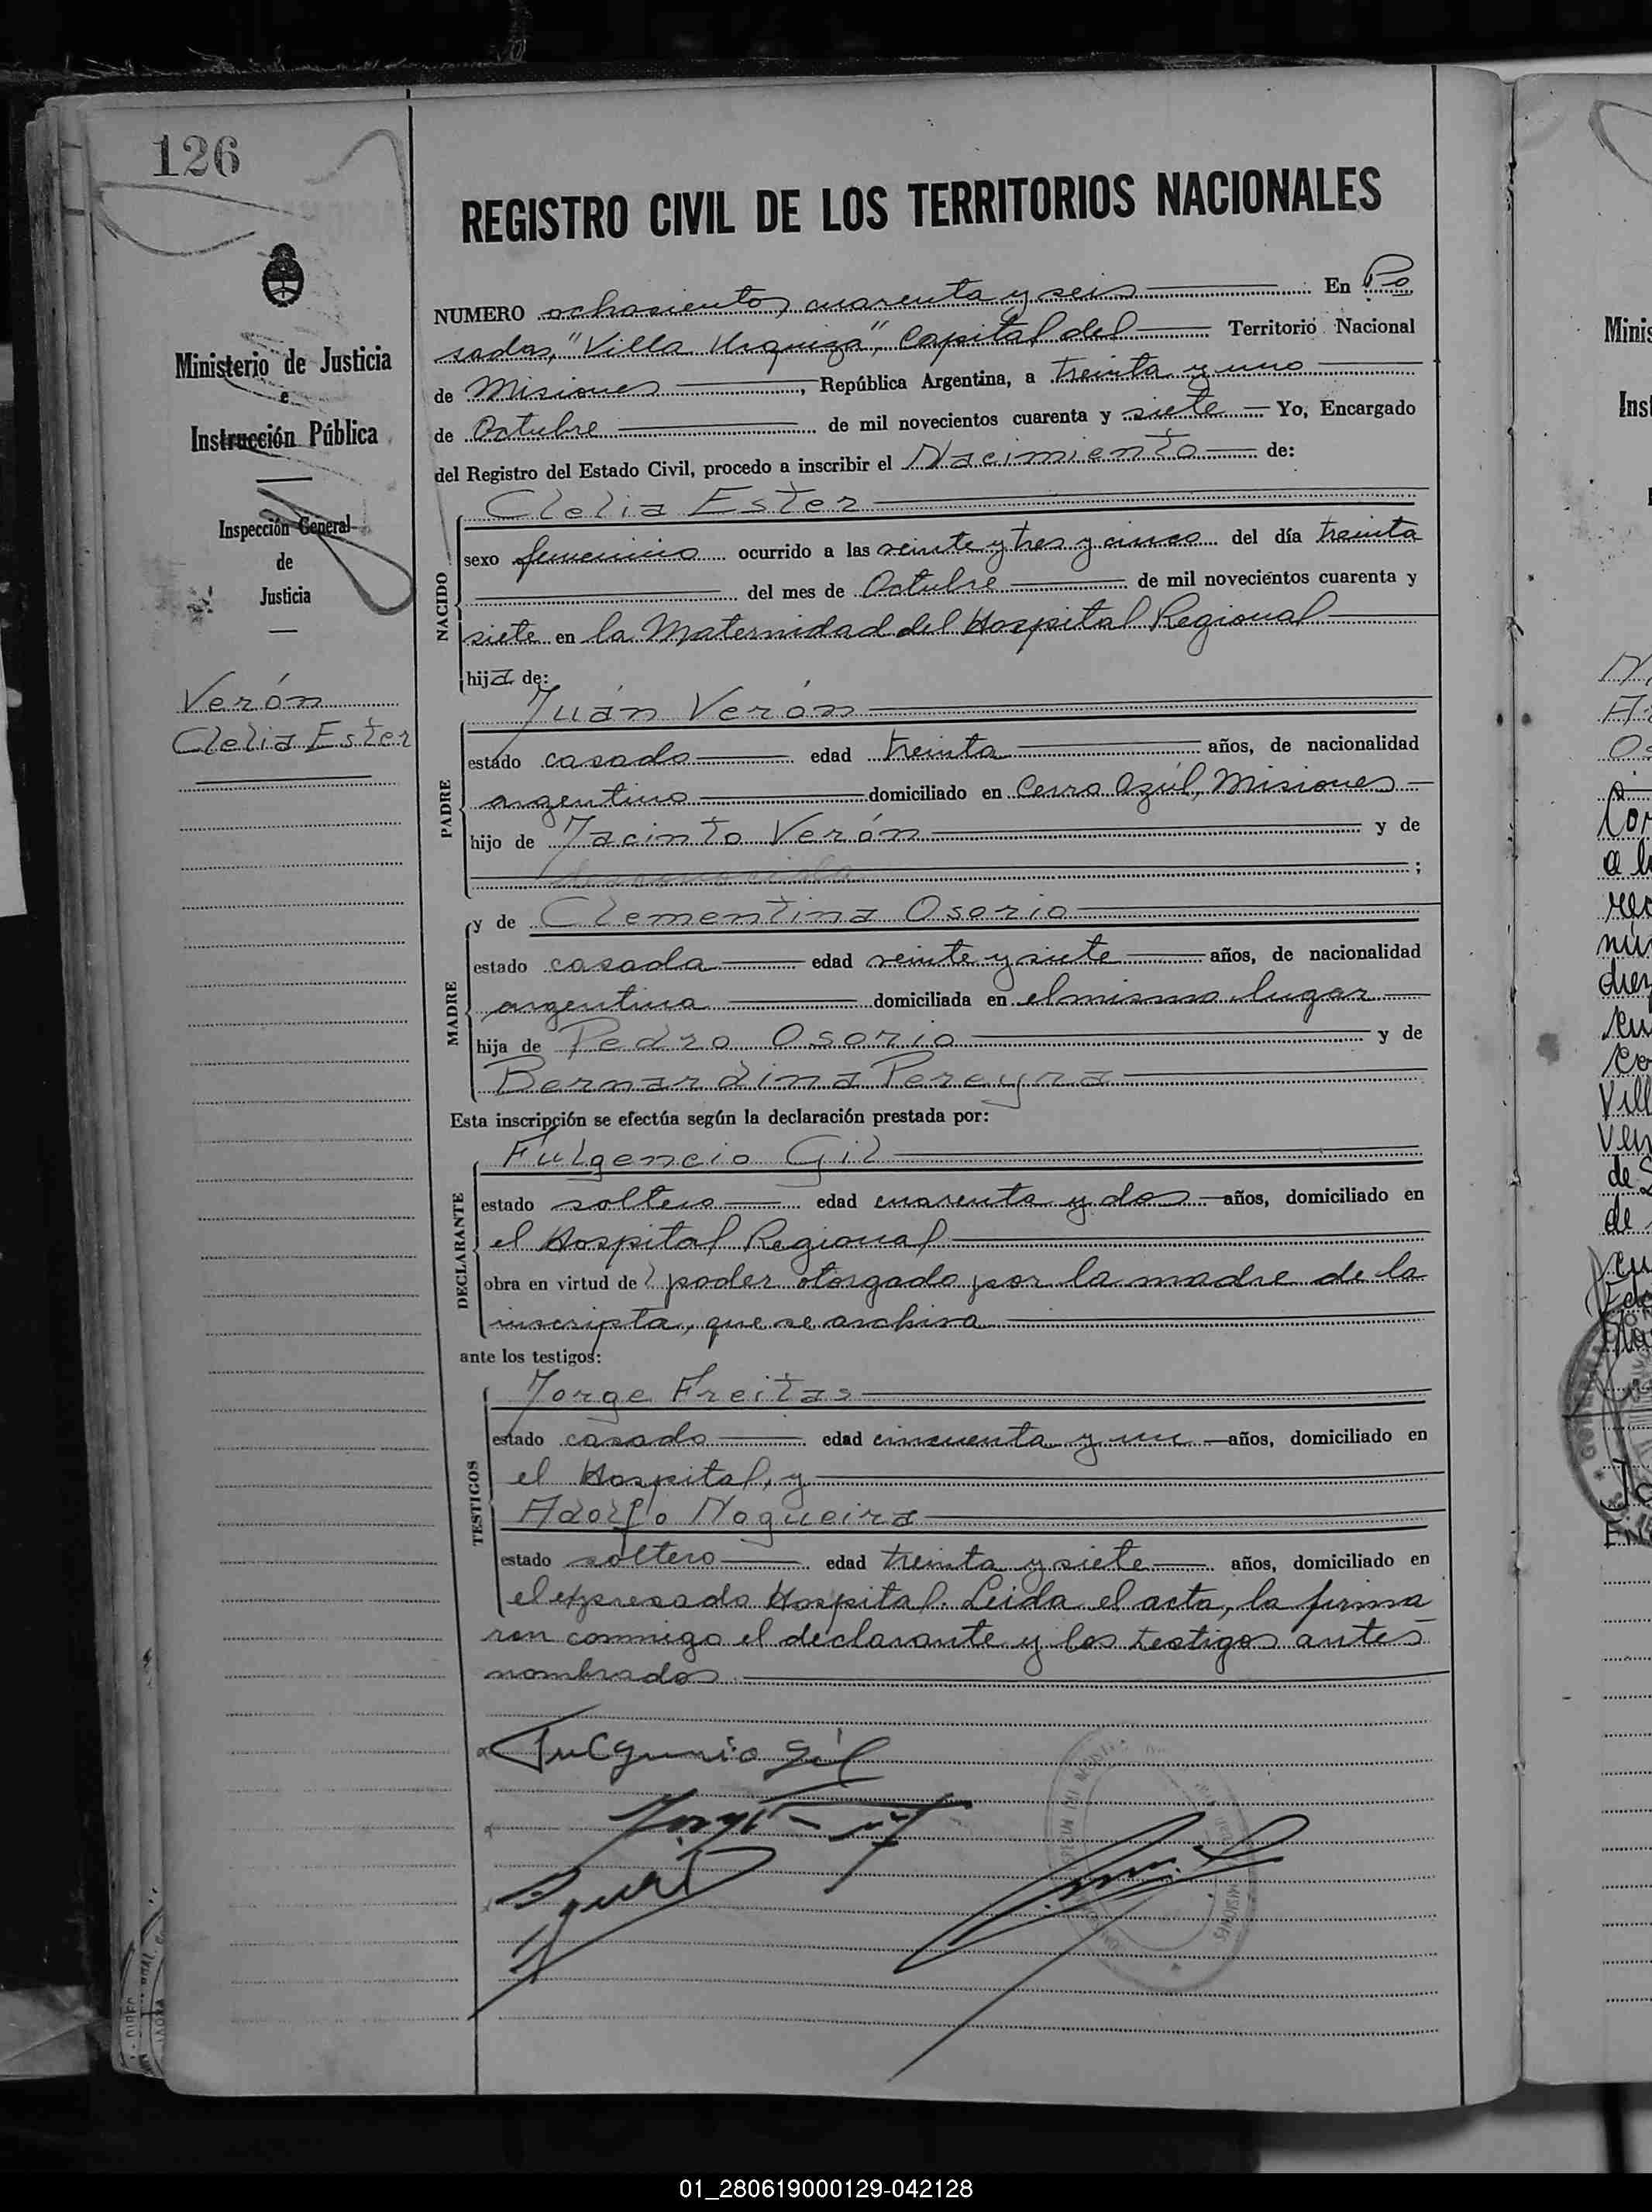 126
REGISTRO CIVIL DE LOS TERRITORIOS NACIONALES
Ministerio de Justicia
e
Instrucción Pública
Inspección General
de
Justicia
Verón
Clelia Ester
NUMERO ochosientos cuarenta y seis En Po
sadas, "Villa Urquiza", Capital del Territorio Nacional
de Misiones, República Argentina, a treinta y uno
de Octubre de mil novecientos cuarenta y siete Yo, Encargado
del Registro del Estado Civil, procedo a inscribir el Nacimiento de:
Clelia Ester
NACIDO
sexo femenino ocurrido a las veinte y tres y cinco del día treinta
del mes de Octubre de mil novecientos cuarenta y
siete en la Maternidad del Hospital Regional
hija de:
Juán Verón
PADRE
estado casado edad treinta años, de nacionalidad
argentino domiciliado en Cerro Azúl, Misiones
hijo de Jacinto Verón y de
;
y de Clementina Osorio
MADRE
estado casada edad veinte y siete años, de nacionalidad
argentina domiciliada en el mismo lugar
hija de Pedro Osorio y de
Bernardina Pereyra
Esta inscripción se efectúa según la declaración prestada por:
Fulgencio Gil
DECLARANTE
estado soltero edad cuarenta y dos años, domiciliado en
el Hospital Regional
obra en virtud de poder otorgado por la madre de la
inscripta, que se archiva
ante los testigos:
Jorge Freitas
TESTIGOS
estado casado edad cincuenta y un años, domiciliado en
el Hospital, y
Adolfo Nogueira
estado soltero edad treinta y siete años, domiciliado en
el expresado Hospital. Leida el acta, la firma
ron conmigo el declarante y los testigos antes
nombrados
Fulgencio Gil
MISIONES
01_280619000129-042128